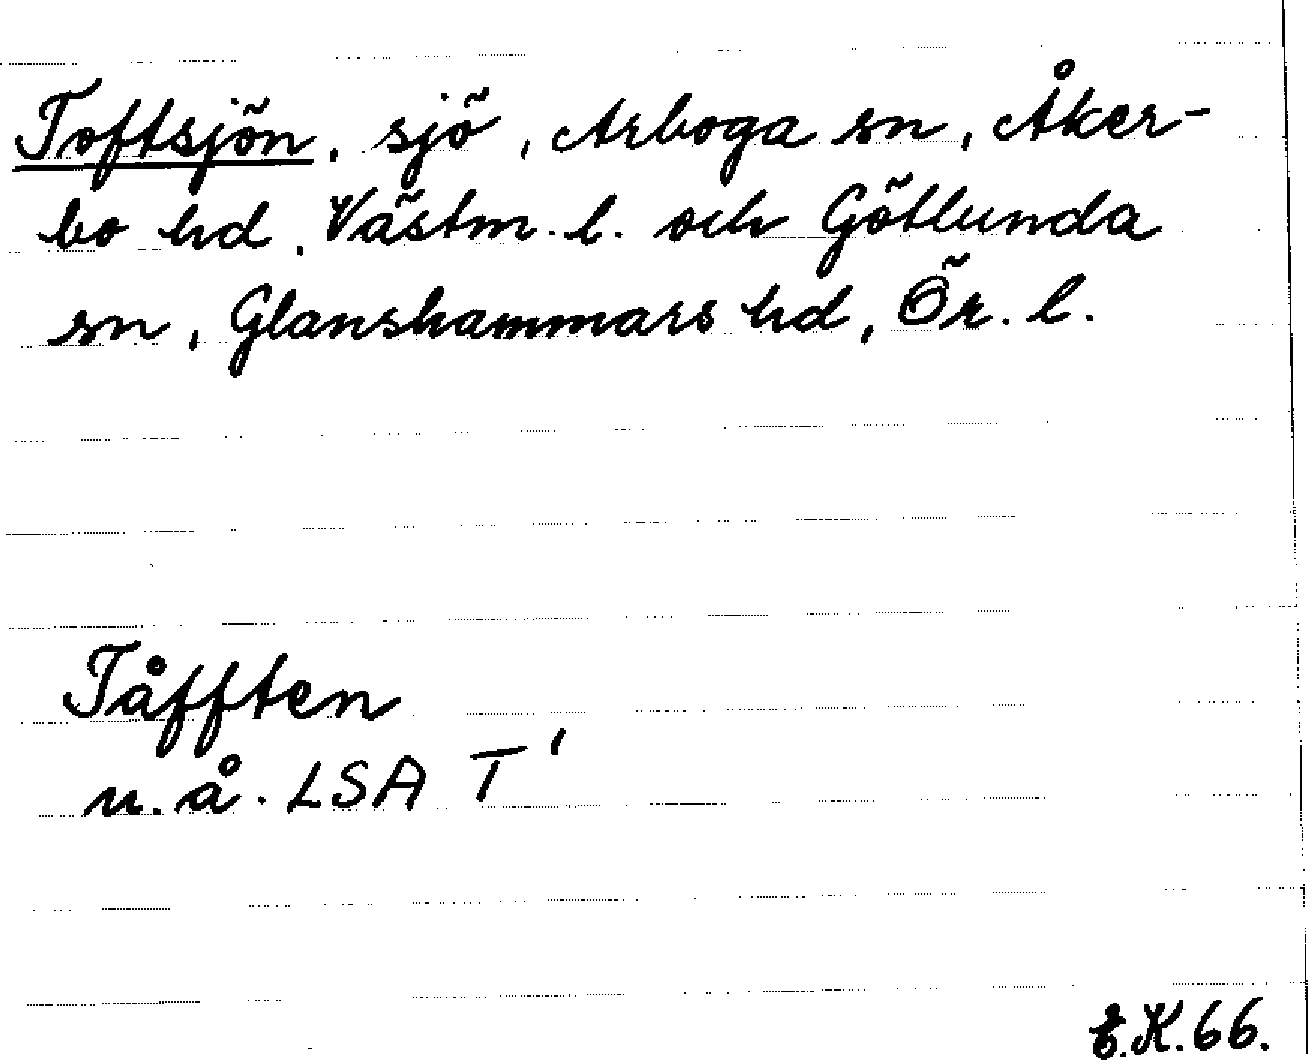 Toftsjön, sjö, Arboga sn, Åker-
bo hd, Västm. l. och Götlunda
sn, Glanshammars hd, Ör. l.
Tåfften
u.å. LSA T'
E.K.66.